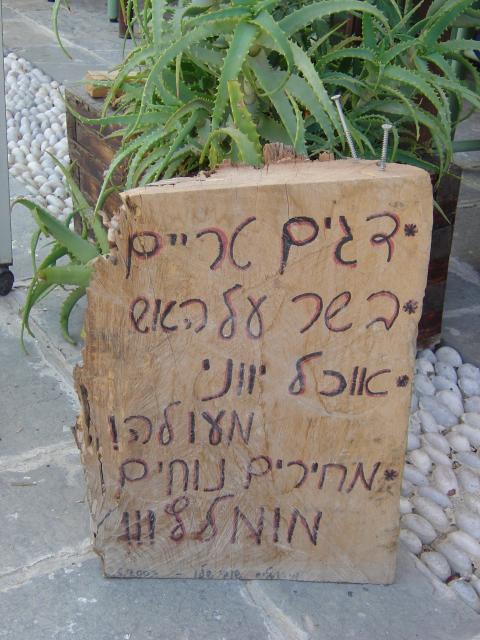 *דגים טריים
*בשר על האש
*אוכל יווני
מעולה!
*מחירים נוחים
מומלץ!!!